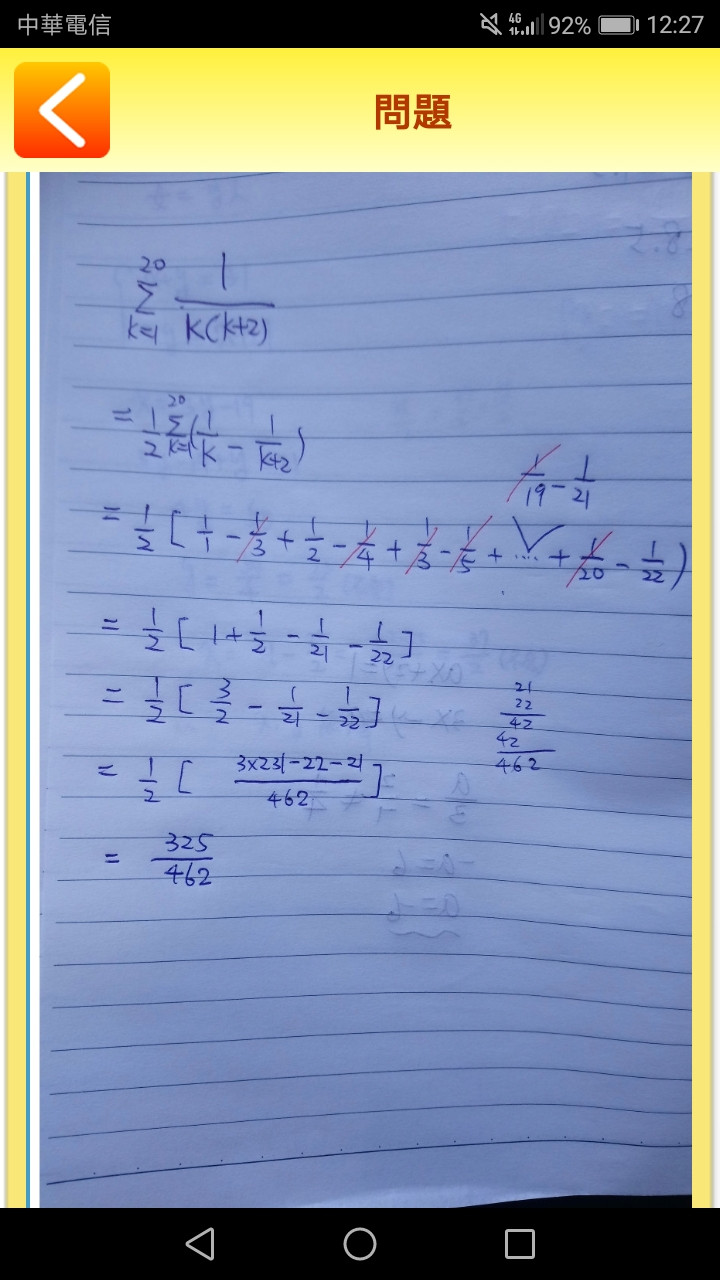 中華電信 4G 92% 12:27
問題
20
Σ 1/(k(k+2))
k=1
= 1/2 Σ(k=1→20) (1/k - 1/(k+2))
1/19 - 1/21
= 1/2 [ 1/1 - 1/3 + 1/2 - 1/4 + 1/3 - 1/5 + ... + 1/20 - 1/22 )
= 1/2 [ 1 + 1/2 - 1/21 - 1/22 ]
= 1/2 [ 3/2 - 1/21 - 1/22 ]
21
22
42
42
462
= 1/2 [ (3×231-22-21)/462 ]
= 325/462